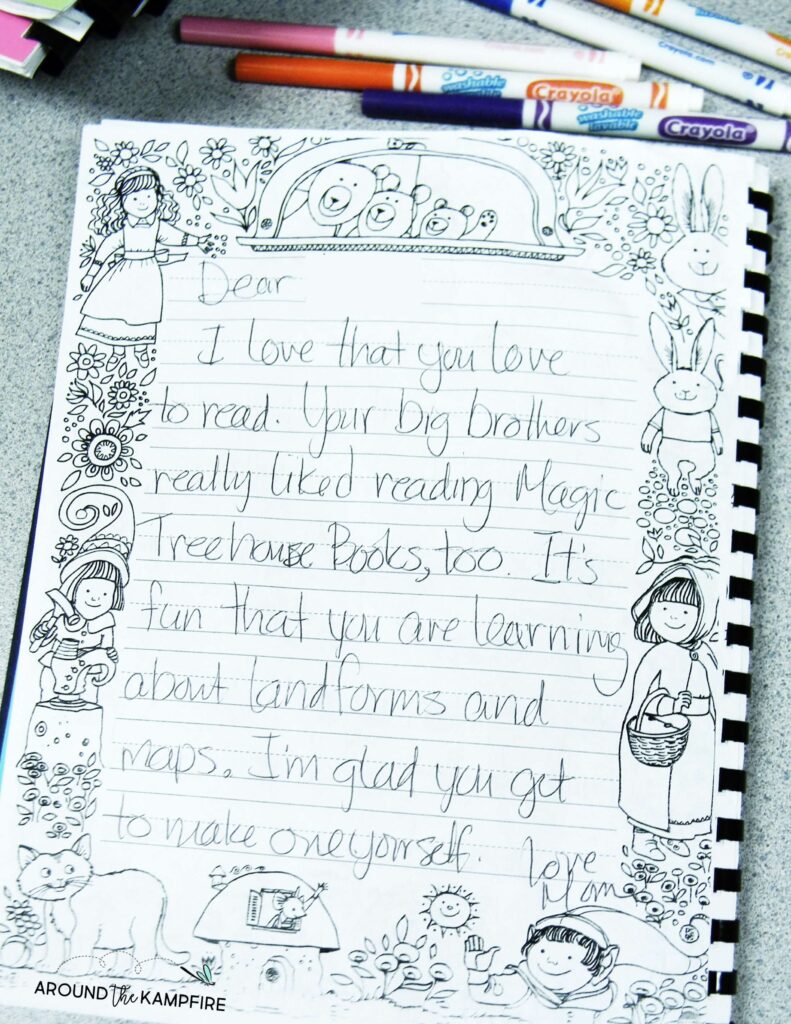 Crayola.com
washable
Crayola
washable
lavable
Crayola
Dear
I love that you love
to read. Your big brothers
really liked reading Magic
Treehouse Books, too. It's
fun that you are learning
about landforms and
maps. I'm glad you get
to make one yourself. Love
Mom
AROUND the KAMPFIRE